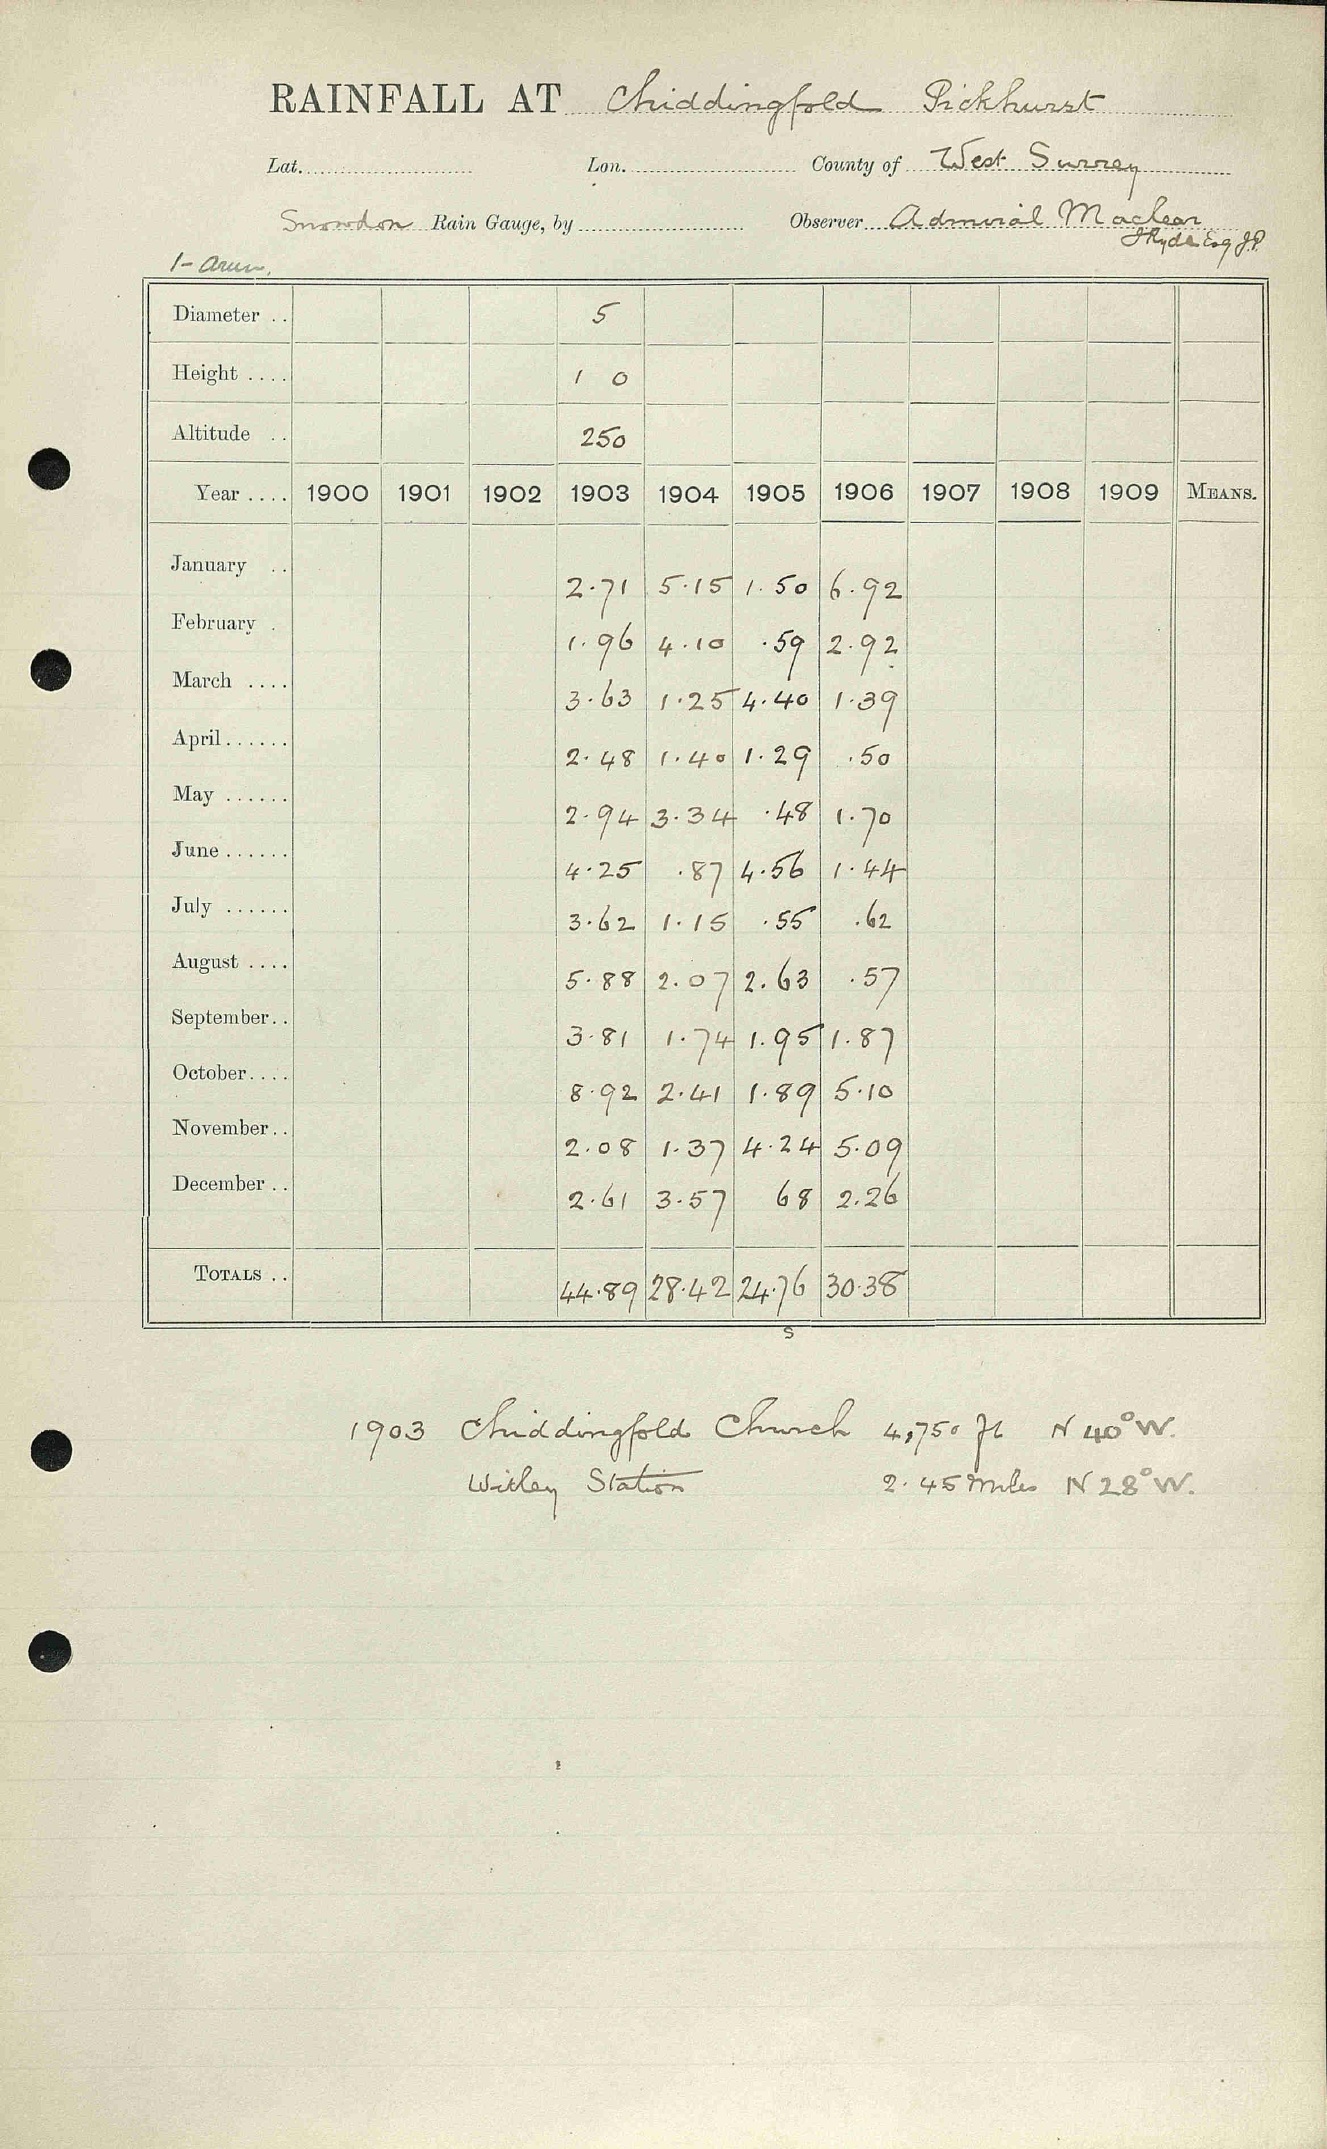 RAINFALL AT Chiddingfold Pickhurst
Lat. Lon. County of West Surrey
Snowdon Rain Gauge, by Observer Admiral Maclear
Hyde Esq J.P.
1- Arun.
Diameter .. 5
Height .... 1 0
Altitude .. 250
Year .... 1900 1901 1902 1903 1904 1905 1906 1907 1908 1909 MEANS.
January .. 2.71 5.15 1.50 6.92
February . 1.96 4.10 .59 2.92
March .... 3.63 1.25 4.40 1.39
April...... 2.48 1.40 1.29 .50
May ...... 2.94 3.34 .48 1.70
June...... 4.25 .87 4.56 1.44
July ...... 3.62 1.15 .55 .62
August .... 5.88 2.07 2.63 .57
September.. 3.81 1.74 1.95 1.87
October.... 8.92 2.41 1.89 5.10
November.. 2.08 1.37 4.24 5.09
December .. 2.61 3.57 68 2.26
TOTALS .. 44.89 28.42 24.76 30.38
s
1903 Chiddingfold Church 4,750 ft N 40° W.
Witley Station 2.45 miles N 28° W.